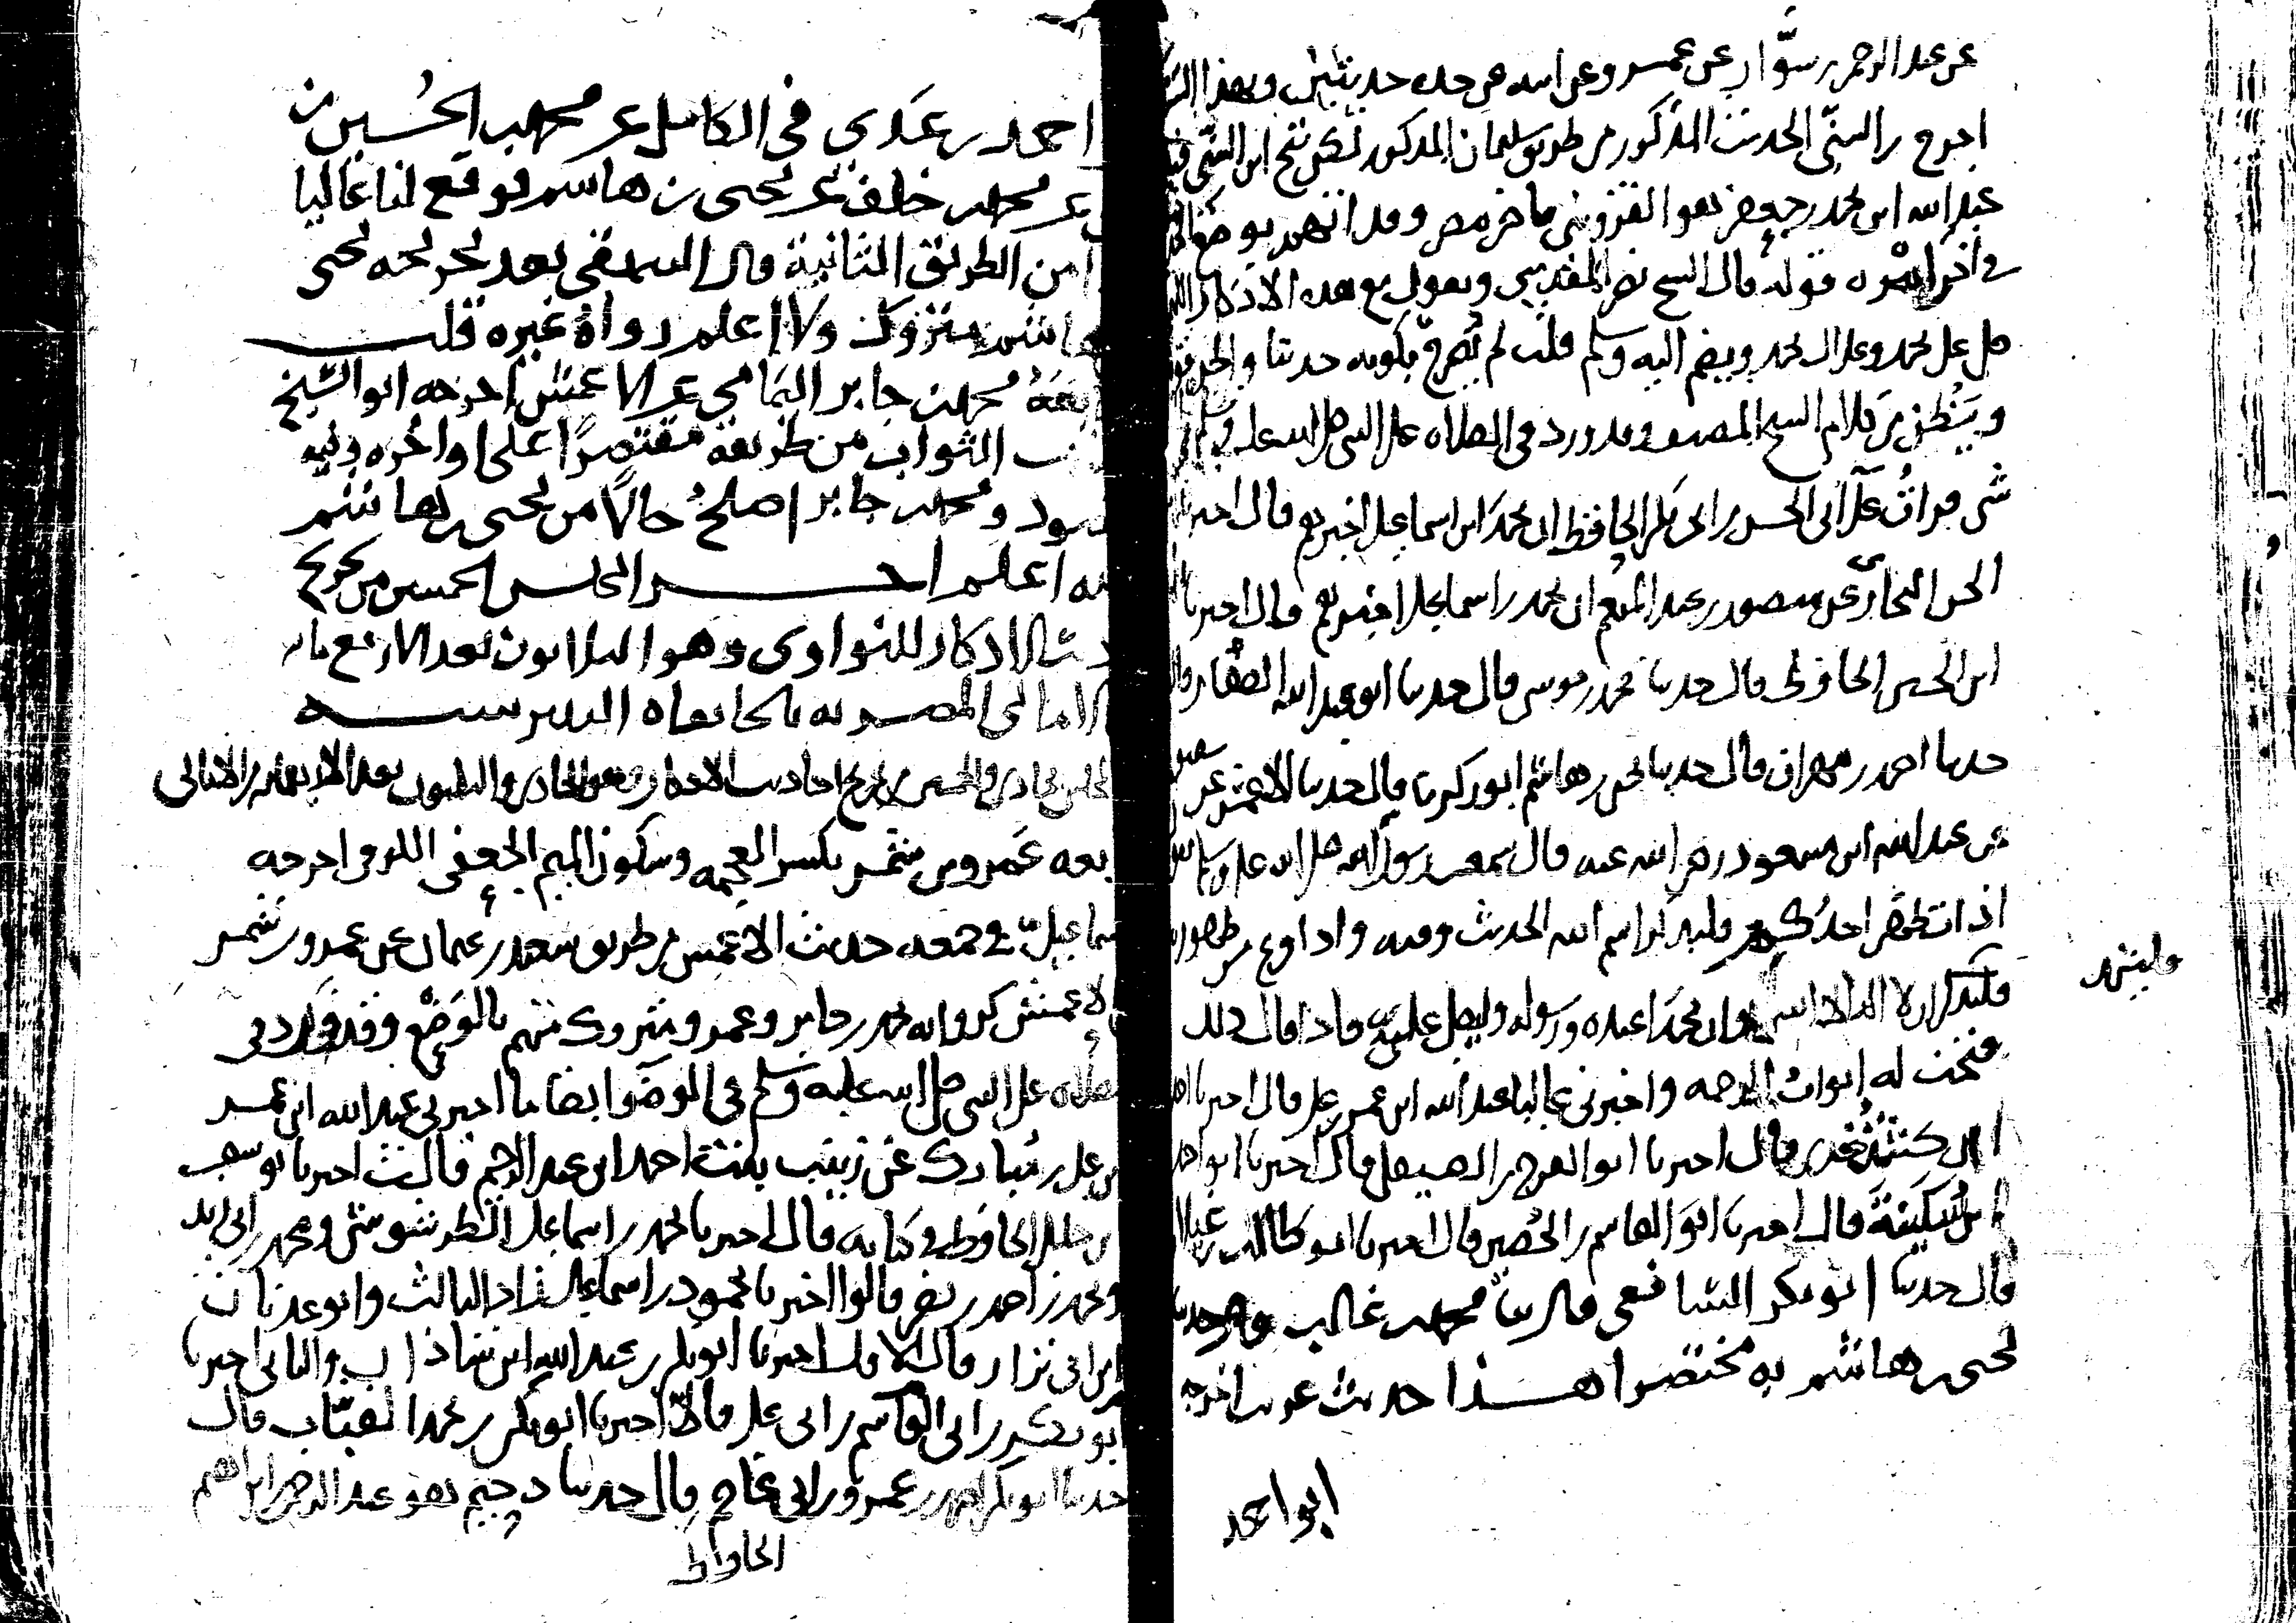 عن عبد الرحمن بن سوار عن عمرو عن ابيه عن جده حديثين وبهذا
اخرج ابن السني الحديث المذكور من طريق سليمان المذكور لكن شيخ ابن السني فيه
عبد الله ابن محمد بن جعفر هو القزويني قاضي مصر وقد اتهموه بوضع
في اخر امره قوله قال الشيخ نصر المقدسي ويقول مع هذه الاذكار اللهم
صل على محمد وعلى ال محمد ويضم اليه وسلم قلت لم يصرح بكونه حديثا
وينظر من كلام الشيخ المصنف وقد ورد في الصلاة على النبي صلى الله عليه
شي قرات على ابي الحسن بن ابي بكر الحافظ ان محمد ابن اسماعيل اخبرهم قال اخبرنا
البخاري عن منصور بن عبد المنعم ان محمد بن اسماعيل اخبرهم قال اخبرنا
ابن الحسين الحافظ قال حدثنا محمد بن موسى قال حدثنا ابو عبد الله الصفار قال
حدثنا احمد بن مهران قال حدثنا يحيى بن هاشم ابو زكريا قال حدثنا الاعمش عن شقيق
عن عبد الله ابن مسعود رضي الله عنه قال سمعت رسول الله صلى الله عليه وسلم
اذا تطهر احدكم فليذكر اسم الله الحديث وفيه واذا فرغ من طهوره
فليشهد ان لا اله الا الله وان محمدا عبده ورسوله وليصل علي فاذا قال ذلك
وليشهد
فتحت له ابواب الرحمة واخبرني عاليا عبد الله ابن عمر بن علي قال اخبرنا احمد
ابن كشتغدي قال اخبرنا ابو الفرج بن الصيقل قال اخبرنا ابو احمد
ابن سكينة قال اخبرنا ابو القاسم بن الحصين قال اخبرنا ابو طالب بن غيلان
قال حدثنا ابو بكر الشافعي قال ثنا محمد بن غالب قال حدثنا
يحيى بن هاشم به مختصرا هذا حديث غريب اخرجه
ابو احمد
احمد بن عدي في الكامل عن محمد بن الحسين بن
عن محمد بن خلف عن يحيى بن هاشم فوقع لنا عاليا
من الطريق الثانية قال البيهقي بعد تخريجه يحيى
هاشم متروك ولا اعلم رواه غيره قلت
تابعه محمد بن جابر اليمامي عن الاعمش اخرجه ابو الشيخ
الثواب من طريقه مقتصرا على اواخره دونه
ومحمد بن جابر اصلح حالا من يحيى بن هاشم
الله اعلم اخر المجلس الخمسين من تخريج
الاذكار للنواوي وهو الثلاثون بعد الاربع مايه
الامالي المصرية بالخانقاه البيبرسية
المجلس الحادي والخمسين من تخريج احاديث الاذكار وهو الحادي والثلثون بعد الاربعماية من الامالي
تابعه عمرو بن شمر بكسر المعجمه وسكون الميم الجعفي الكوفي اخرجه
الاسماعيلي في جمعه حديث الاعمش من طريق سعيد بن عثمان عن عمرو بن شمر
الاعمش كرواية محمد بن جابر وعمرو متروك متهم بالوضع وقد ورد في
الصلاه على النبي صلى الله عليه وسلم في الوضوء ايضا ما اخبرني عبد الله ابن عمر
بن علي بن مبارك عن زينب بنت احمد ابن عبد الرحيم قالت اخبرنا يوسف
بن خليل الحافظ في كتابه قال اخبرنا محمد بن اسماعيل الطرسوسي ومحمد بن ابي زيد
ومحمد بن احمد بن نصر قالوا اخبرنا محمود بن اسماعيل زاد الثالث وابو عدنان
ابن ابي نزار قال الاول اخبرنا ابو بكر بن عبد الله ابن شاذان والثاني اخبرنا
ابو بكر بن ابي القاسم بن ابي علي قالا اخبرنا ابو بكر بن محمد القباب قال
حدثنا ابو بكر احمد بن عمرو بن ابي عاصم قال حدثنا دحيم هو عبد الرحمن بن ابراهيم
الحافظ